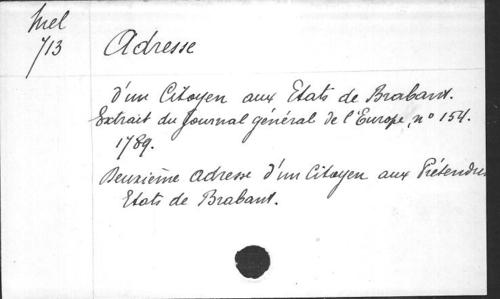 Mel
713
Adresse
d'un Citoyen aux Etats de Brabant.
Extrait du Journal général de l'Europe, n° 154.
1789.
Deuxième Adresse d'un Citoyen aux Prétendus
Etats de Brabant.